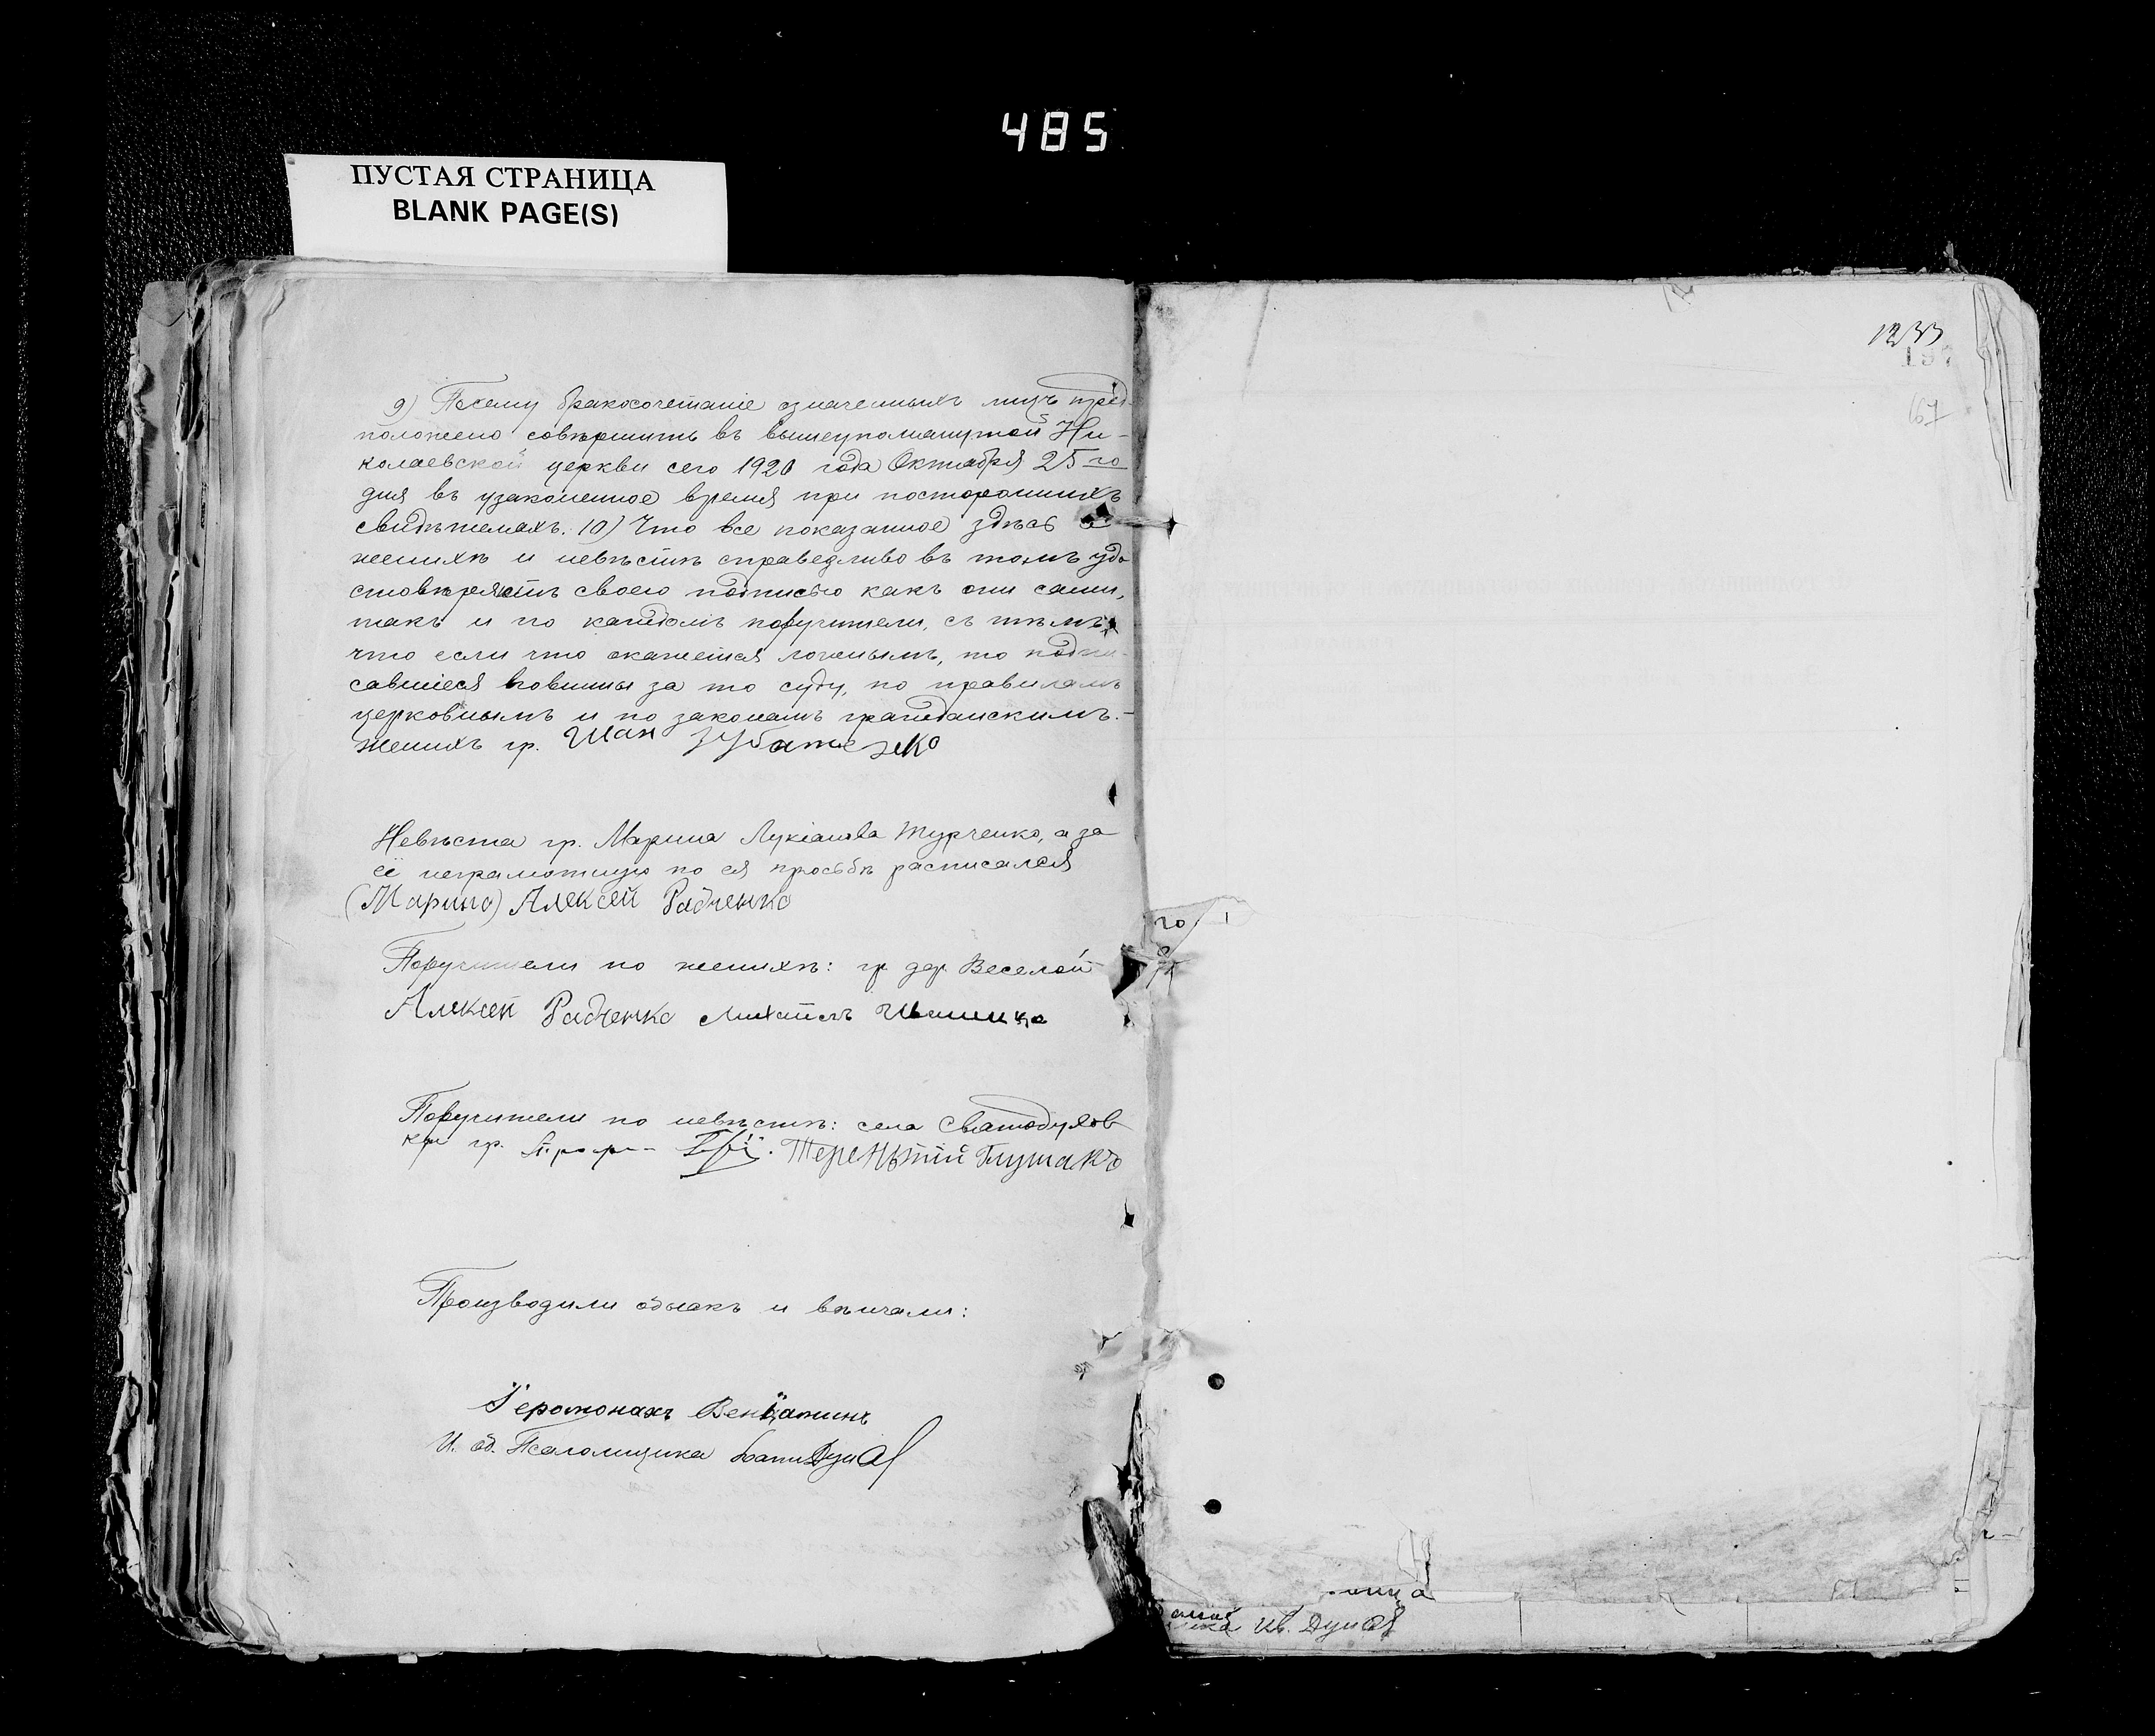 485
ПУСТАЯ СТРАНИЦА
BLANK PAGE(S)
9) Посему бракосочетаніе означенныхъ лицъ пред-
положено совершить въ вышеупомянутой Ни-
колаевской церкви сего 1920 года Октября 25 го
дня въ узаконенное время при постороннихъ
свидѣтеляхъ. 10) Что все показанное здѣсь о
женихѣ и невѣстѣ справедливо въ томъ удо
стовѣряютъ своею подписью какъ они сами,
такъ и по каждомъ поручители, съ тѣмъ,
что если что окажется ложнымъ, то подпи-
савшіеся повинны за то суду, по правиламъ
церковнымъ и по законамъ гражданскимъ.-
Женихъ гр. Иван
Невѣста гр. Марина Лукіанова Турченко, а за
её неграмотную по ея просьбѣ расписался
(Марино) Алексей Радченко
Поручители по женихѣ: гр. дер. Веселой
Алексей Радченко Михаилъ
Поручители по невѣстѣ: села Святодухов
ки гр. Терентий Глушакъ
Производили обыскъ и вѣнчали:
Іеромонахъ Веніаминъ
И. об. Псаломщика
1233
197
67
го
Ив.